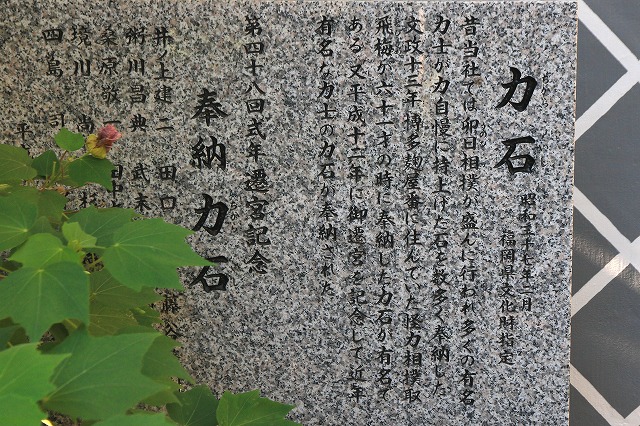 力石
昭和三十七年二月
福岡県文化財指定
昔当社では卯日相撲が盛んに行われ多くの有名
力士が力自慢に持上げた石を数多く奉納した
文政十三年博多麹屋番に住んでいた怪力相撲取
飛梅が六十一才の時に奉納した力石が有名で
ある 又平成十二年に御遷宮を記念して近年
有名な力士の力石が奉納された
第四十八回式年遷宮記念
奉納力石
井ノ上建二 田口
術川昌典 武末
桑原敬一
境川
四島